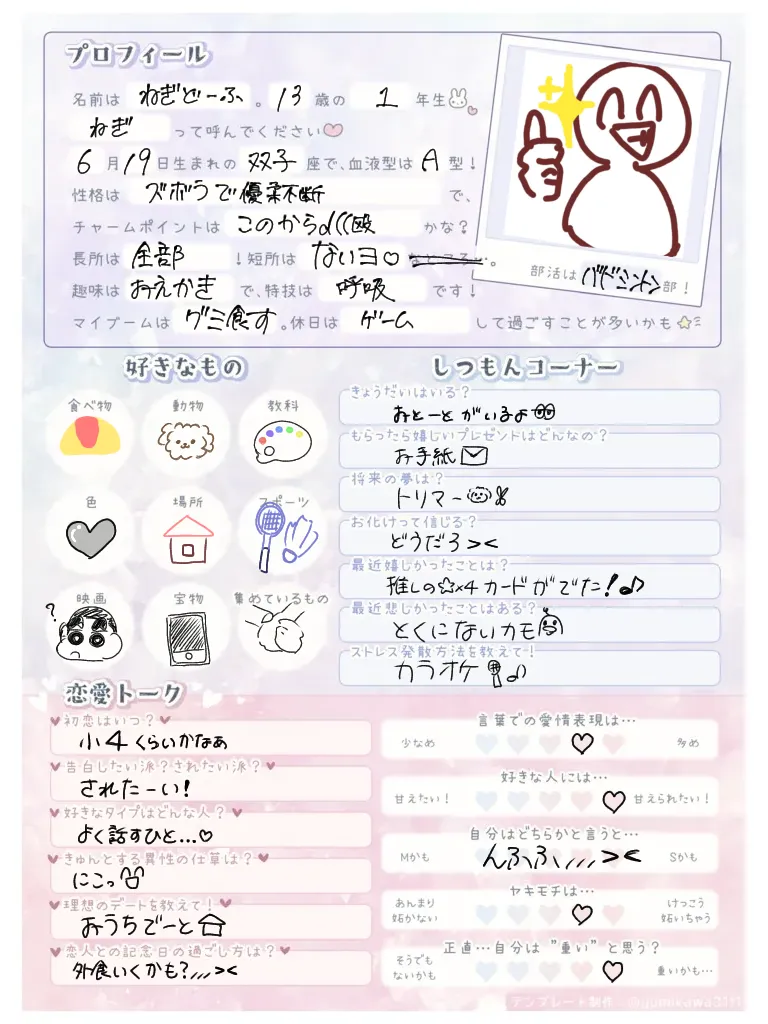 プロフィール
名前は ねぎどーふ 。 13 歳の 1 年生
ねぎ って呼んでください
6 月 19 日生まれの 双子 座で、血液型は A 型!
性格は ズボラで優柔不断 で、
チャームポイントは このからd((殴 かな?
長所は 全部 !短所は ないヨ♡ 。
趣味は おえかき で、特技は 呼吸 です!
マイブームは グミ食す 。休日は ゲーム して過ごすことが多いかも
部活は バドミントン 部!
好きなもの
食べ物 動物 教科
色 場所 スポーツ
映画 宝物 集めているもの
?
しつもんコーナー
きょうだいはいる?
おとーとがいるよ
もらったら嬉しいプレゼントはどんなの?
お手紙
将来の夢は?
トリマー
お化けって信じる?
どうだろ><
最近嬉しかったことは?
推しの☆×4カードがでた!♪
最近悲しかったことはある?
とくにないカモ
ストレス発散方法を教えて!
カラオケ ♪
恋愛トーク
♥初恋はいつ?♥
小4くらいかなぁ
♥告白したい派?されたい派?♥
されたーい!
♥好きなタイプはどんな人?♥
よく話すひと...♡
♥きゅんとする異性の仕草は?♥
にこっ
♥理想のデートを教えて!♥
おうちでーと
♥恋人との記念日の過ごし方は?♥
外食いくかも?,,,><
言葉での愛情表現は…
少なめ 多め
好きな人には…
甘えたい! 甘えられたい!
自分はどちらかと言うと…
Mかも んふふ,,,>< Sかも
ヤキモチは…
あんまり妬かない けっこう妬いちゃう
正直…自分は"重い"と思う?
そうでもないかも 重いかも…
テンプレート制作